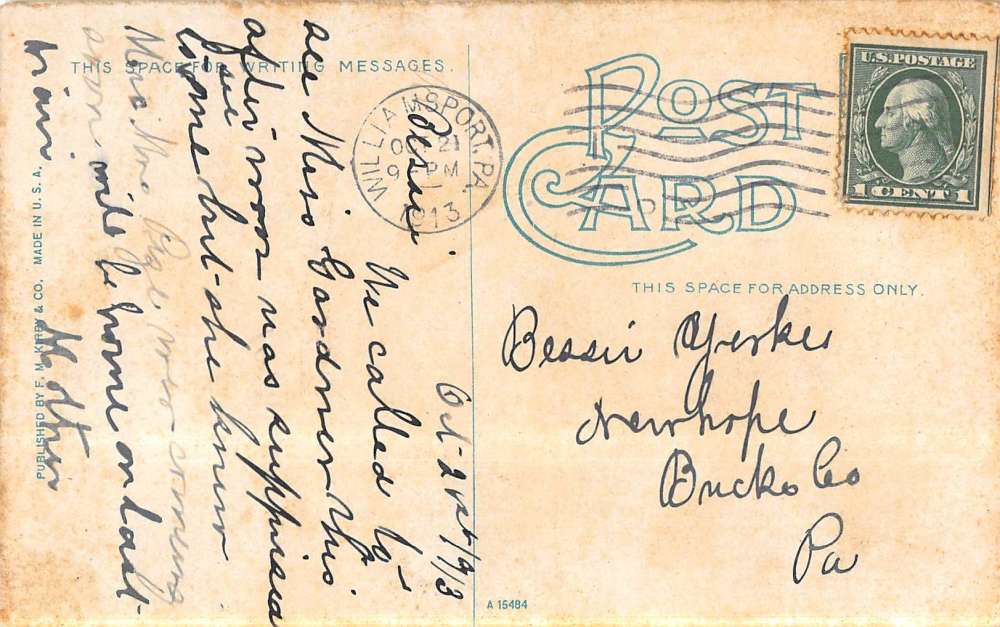 THIS SPACE FOR WRITING MESSAGES.
POST CARD
U.S. POSTAGE
1 CENT 1
WILLIAMSPORT, PA.
21
9 PM
1913
THIS SPACE FOR ADDRESS ONLY.
Bessie Yerkes
Newhope
Bucks Co
Pa
Oct-21st/913
Bessie.
We called to
see Miss Gardner this
afternoon was suppised
to see
home but-she knew
Miss Mrs
soon will be home on last-
train
Mother
PUBLISHED BY F. M. KIRBY & CO. MADE IN U. S. A.
A 15484